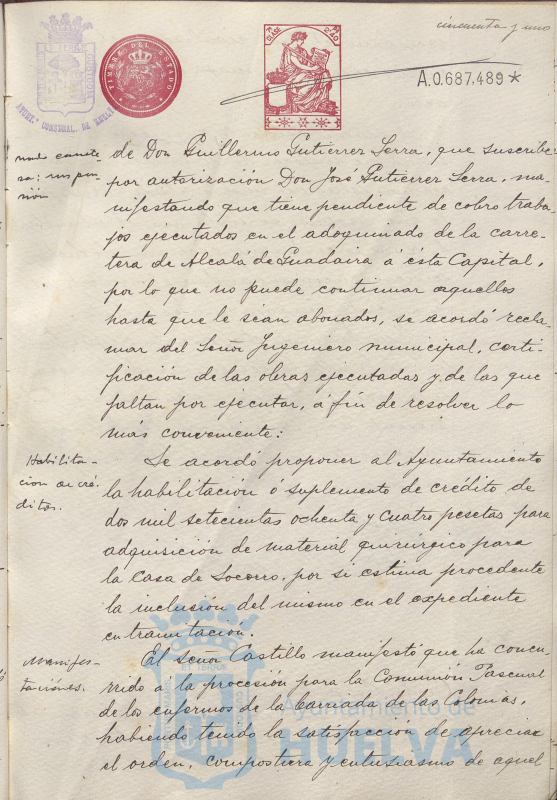 cincuenta y uno
AYUNT. CONSTNAL. DE HUELVA
TIMBRE DEL ESTADO
CLASE 8ª
A.0.687.489 *
de Don Guillermo Gutierrez Serra, que suscribe
por autorización Don José Gutierrez Serra, ma-
nifestando que tiene pendiente de cobro traba-
jos ejecutados en el adoquinado de la carre-
tera de Alcalá de Guadaira á ésta Capital,
por lo que no puede continuar aquellos
hasta que le sean abonados, se acordó recla-
mar del Señor Ingeniero municipal, certi-
ficación de las obras ejecutadas y de las que
faltan por ejecutar, á fin de resolver lo
más conveniente:
Habilita-
cion de cré-
ditos.
Se acordó proponer al Ayuntamiento
la habilitación ó suplemento de crédito de
dos mil setecientas ochenta y cuatro pesetas para
adquisición de material quirúrgico para
la Casa de Socorro, por si estima procedente
la inclusión del mismo en el expediente
en tramitación.
Manifes-
taciones.
El señor Castillo manifestó que ha concu-
rrido á la procesión para la Comunión Pascual
de los enfermos de la barriada de las Colonias,
habiendo tenido la satisfacción de apreciar
el orden, compostura y entusiasmo de aquel
Ayuntamiento de
HUELVA